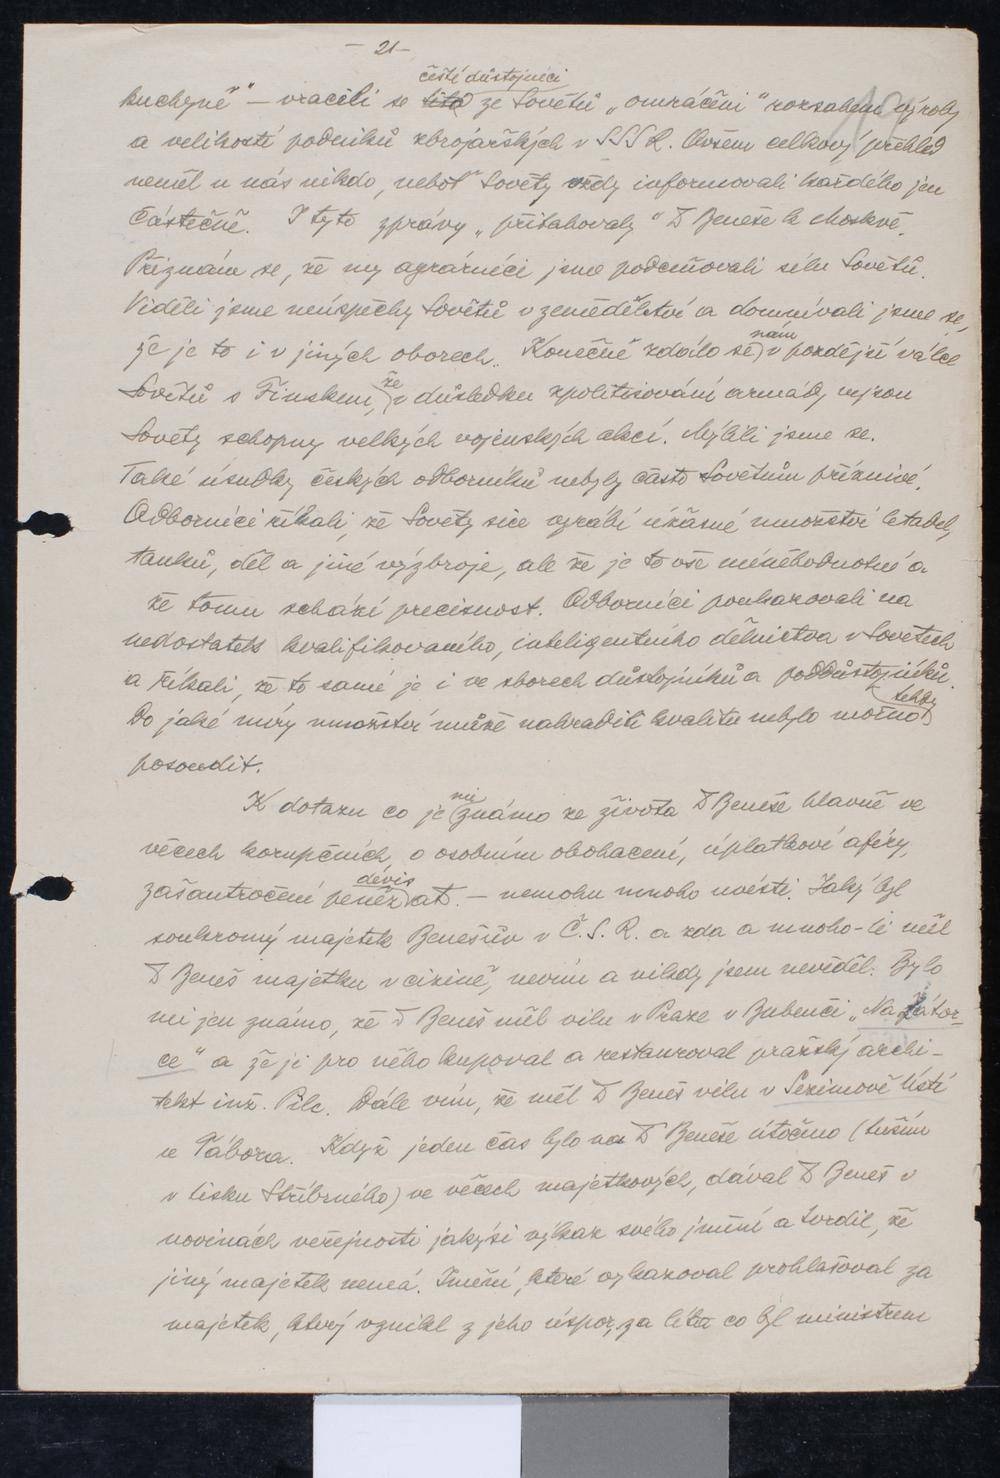 — 21 —
čeští důstojníci
kuchyně" — vraceli se ze Sovětů „omráčeni" rozsahem výroby
a velikostí podniků zbrojařských v SSSR. Ovšem celkový přehled
neměl u nás nikdo, neboť Sověty vždy informovali každého jen
částečně. I tyto zprávy „přitahovaly" D Beneše k Moskvě.
Přiznám se, že my agrárníci jsme podceňovali sílu Sovětů.
Viděli jsme neúspěchy Sovětů v zemědělství a domnívali jsme se,
že je to i v jiných oborech. Konečně zdálo se nám v pozdější válce
Sovětů s Finskem, že v důsledku zpolitisování armády nejsou
Sověty schopny velkých vojenských akcí. Mýlili jsme se.
Také úsudky českých odborníků nebyly často Sovětům příznivé.
Odborníci říkali, že Sověty sice vyrábí úžasné množství letadel,
tanků, děl a jiné výzbroje, ale že je to vše méněhodnotné a
že tomu schází precisnost. Odborníci poukazovali na
nedostatek kvalifikovaného, inteligentního dělnictva v Sovětech
a říkali, že to samé je i ve sborech důstojníků a poddůstojníků.
Do jaké míry množství může nahraditi kvalitu nebylo možno tehdy
posoudit.
K dotazu co je mi známo ze života D Beneše hlavně ve
věcech korupčních, o osobním obohacení, úplatkové aféry,
zašantročení peněz, devis atd. — nemohu mnoho uvésti. Jaký byl
soukromý majetek Benešův v Č.S.R. a zda a mnoho-li měl
D Beneš majetku v cizině, nevím a nikdy jsem nevěděl. Bylo
mi jen známo, že D Beneš měl vilu v Praze v Bubenči „Na Zátor-
ce" a že ji pro něho kupoval a restauroval pražský archi-
tekt inž. Pilc. Dále vím, že měl D Beneš vilu v Sezimově Ústí
u Tábora. Když jeden čas bylo na D Beneše útočeno (tuším
v tisku Stříbrného) ve věcech majetkových, dával D Beneš v
novinách veřejnosti jakýsi výkaz svého jmění a tvrdil, že
jiný majetek nemá. Jmění, které vykazoval prohlašoval za
majetek, který vznikl z jeho úspor, za léta co byl ministrem